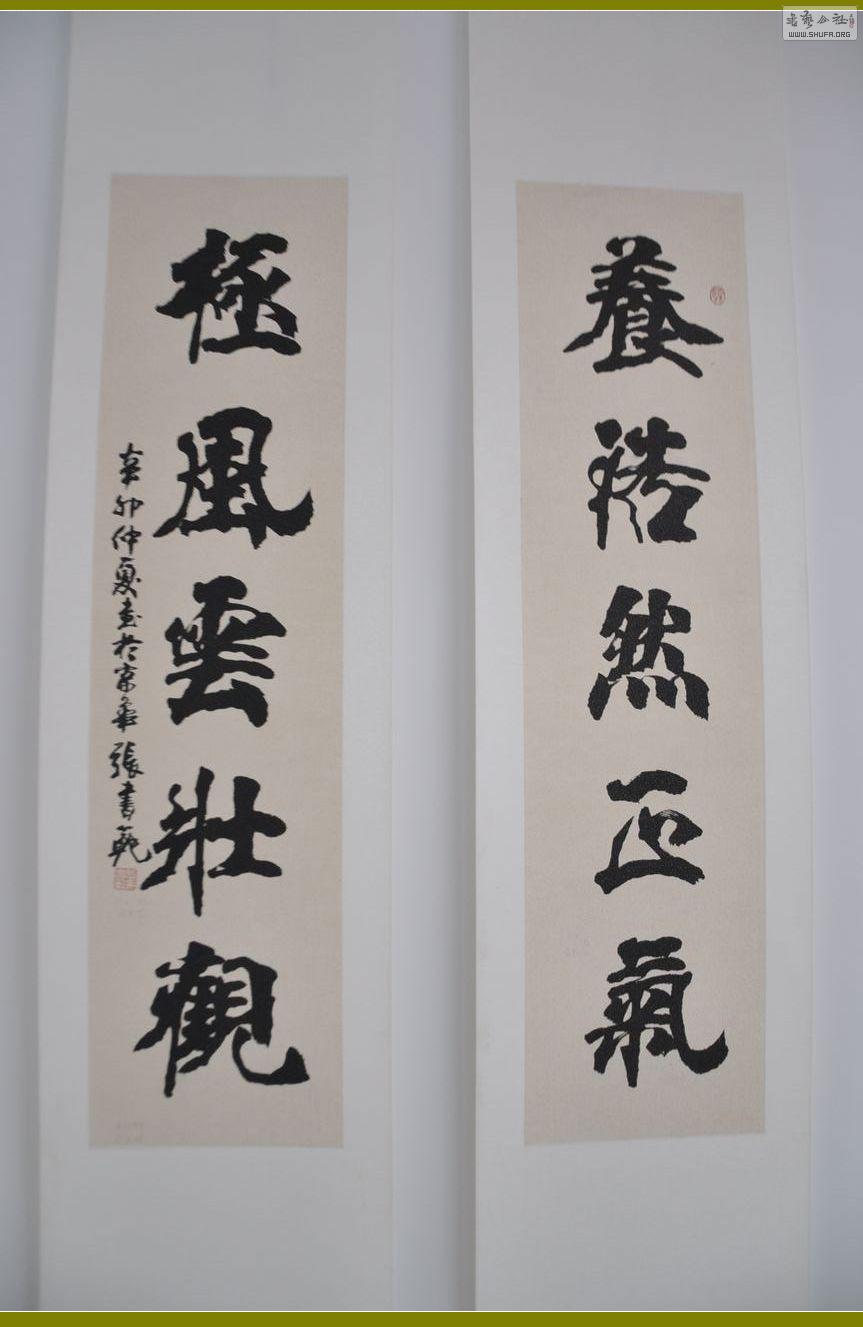 養浩然正氣
極風雲壯觀
辛卯仲夏書於京華張書範
書藝公社
WWW.SHUFA.ORG